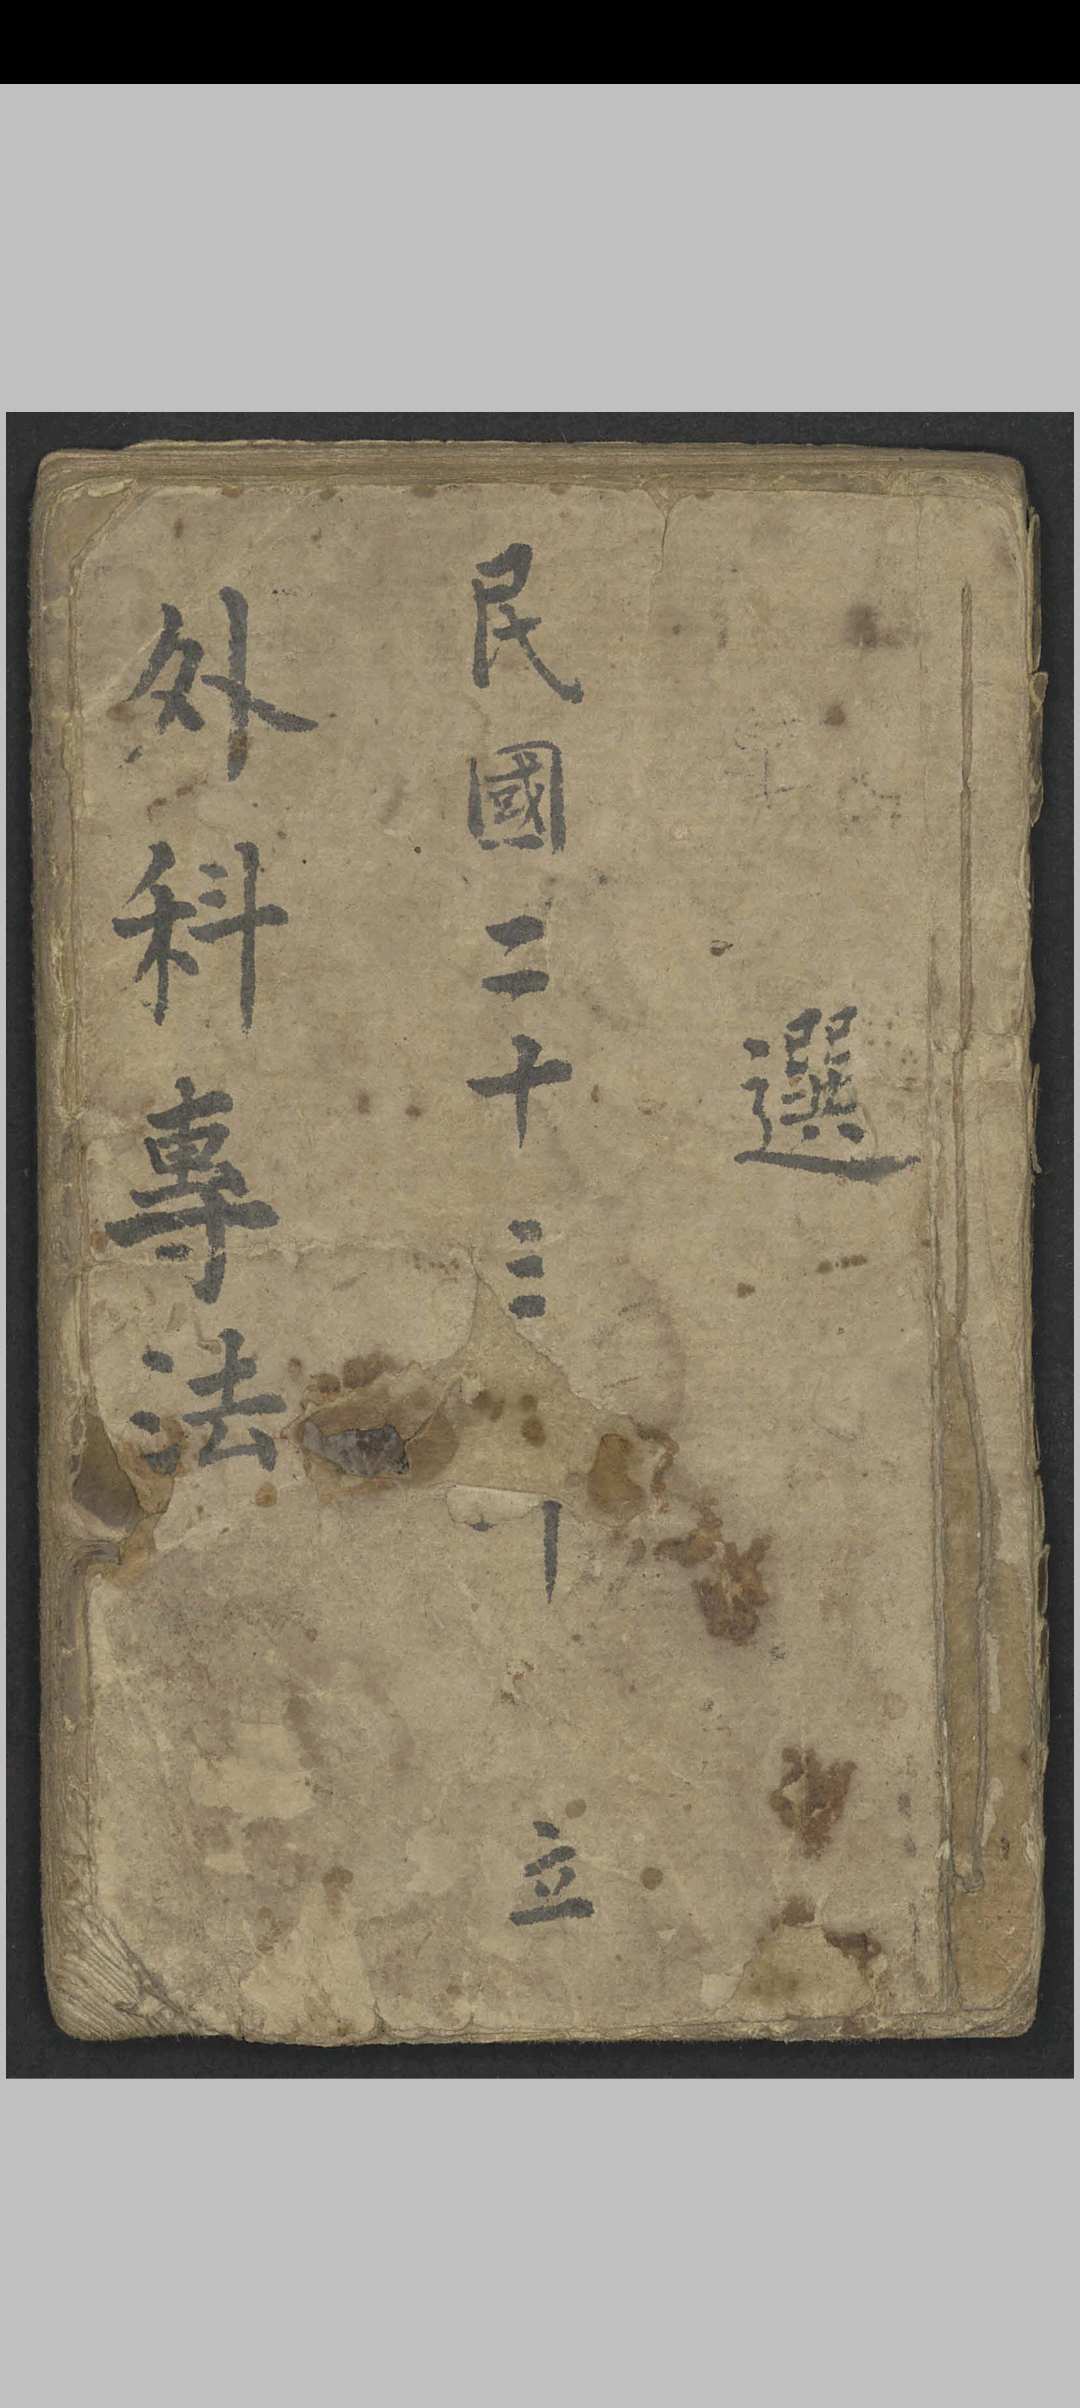 選
民國二十三 立
外科專法